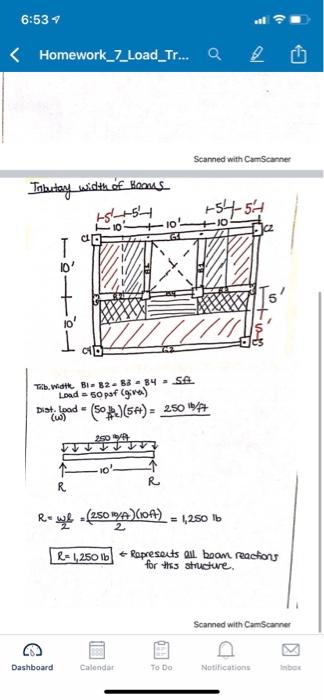 6:53
Homework_7_Load_Tr...
Scanned with CamScanner
Tributary width of Beams
5' 5' 5' 5'
10' 10' 10
C1 G1 C2
10'
B1 B1
B2 B4 B3
5'
10'
5'
C4 G2 C3
Trib. width B1 = B2 = B3 = B4 = 5ft
Load = 50 psf (given)
Dist. Load = (50 lb/ft²)(5ft) = 250 lb/ft
(w)
250 lb/ft
10'
R R
R = wl/2 = (250 lb/ft)(10ft)/2 = 1,250 lb
R = 1,250 lb ← Represents all beam reactions
for this structure.
Scanned with CamScanner
Dashboard Calendar To Do Notifications Inbox